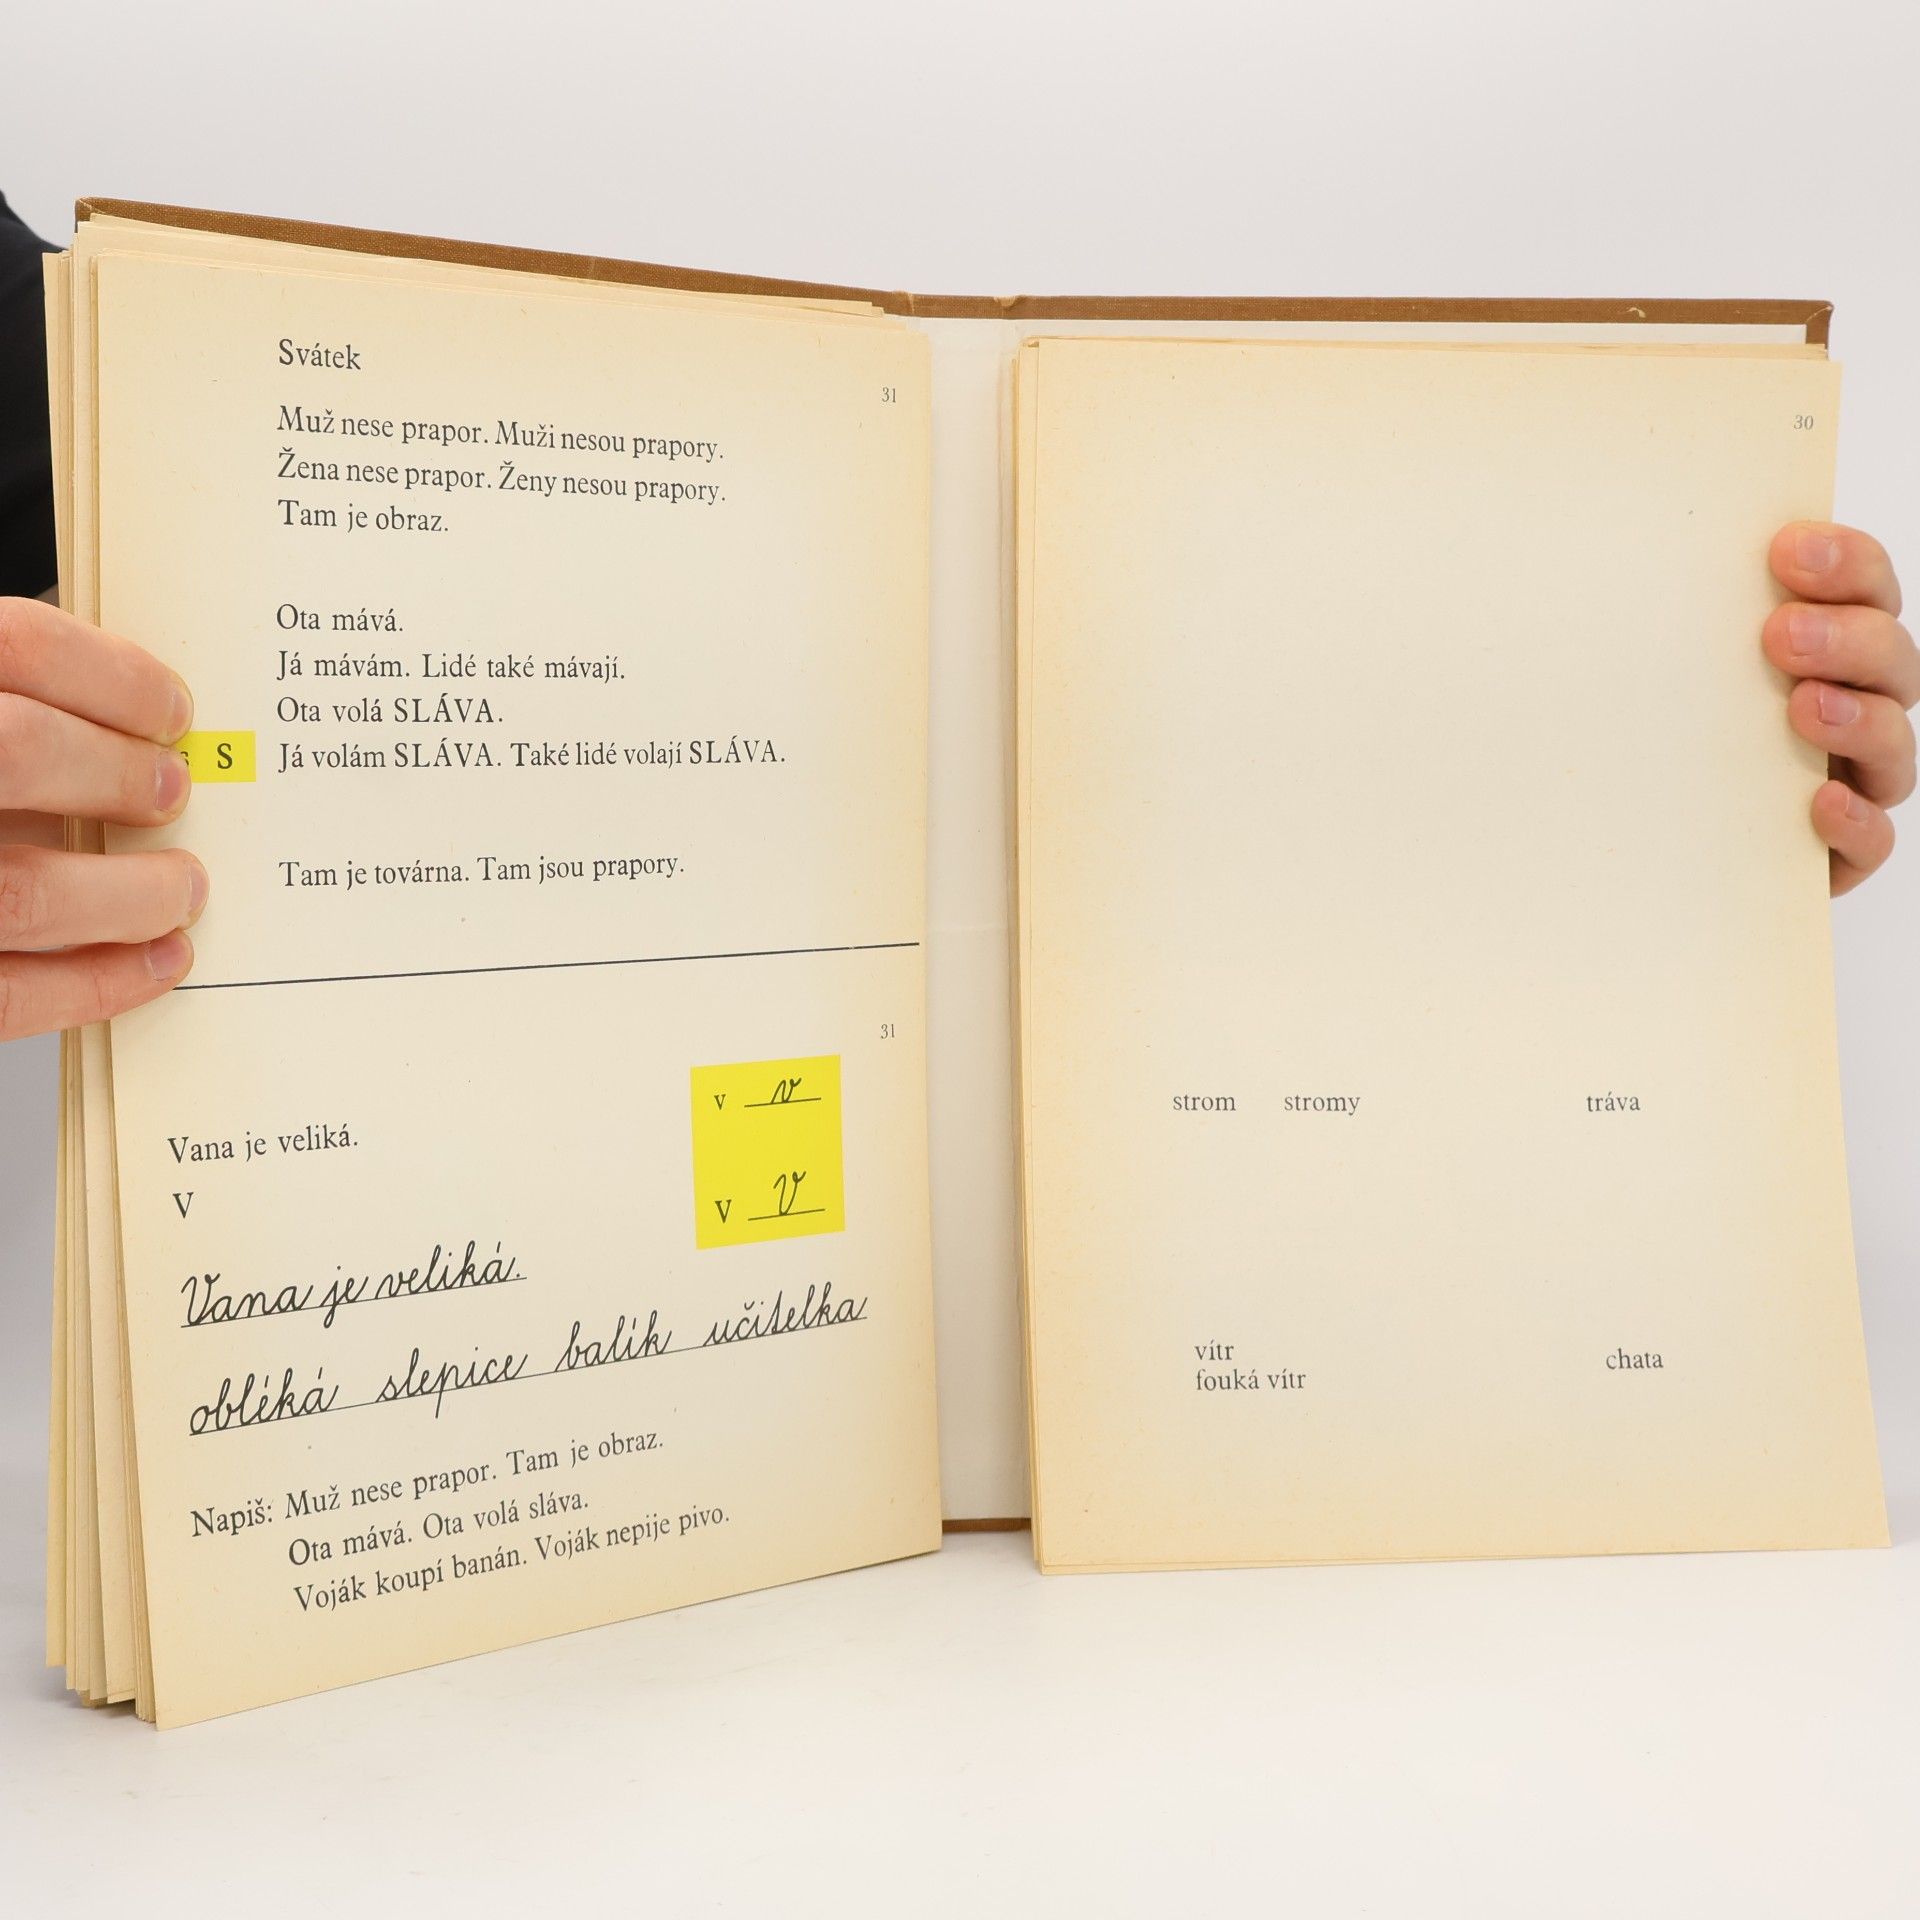 Svátek
31
Muž nese prapor. Muži nesou prapory.
Žena nese prapor. Ženy nesou prapory.
Tam je obraz.
Ota mává.
Já mávám. Lidé také mávají.
Ota volá SLÁVA.
s S Já volám SLÁVA. Také lidé volají SLÁVA.
Tam je továrna. Tam jsou prapory.
31
v v
Vana je veliká.
V
V V
Vana je veliká.
obléká slepice balík učitelka
Napiš: Muž nese prapor. Tam je obraz.
Ota mává. Ota volá sláva.
Voják koupí banán. Voják nepije pivo.
30
strom stromy tráva
vítr
fouká vítr
chata